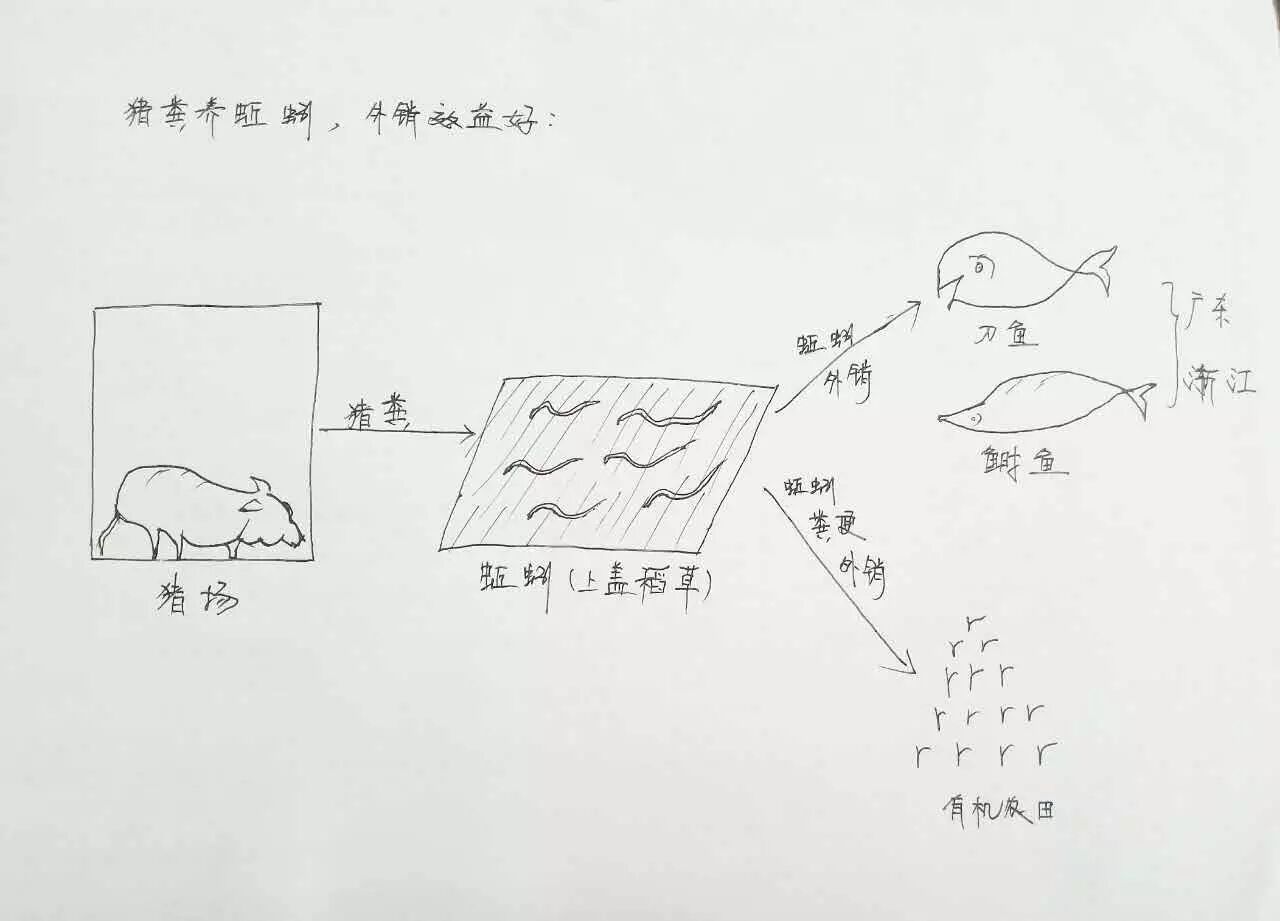 猪粪养蚯蚓，外销效益好：
猪场
猪粪
蚯蚓(上盖稻草)
蚯蚓
外销
刀鱼
鲥鱼
广东
浙江
蚯蚓
粪更
外销
有机农田